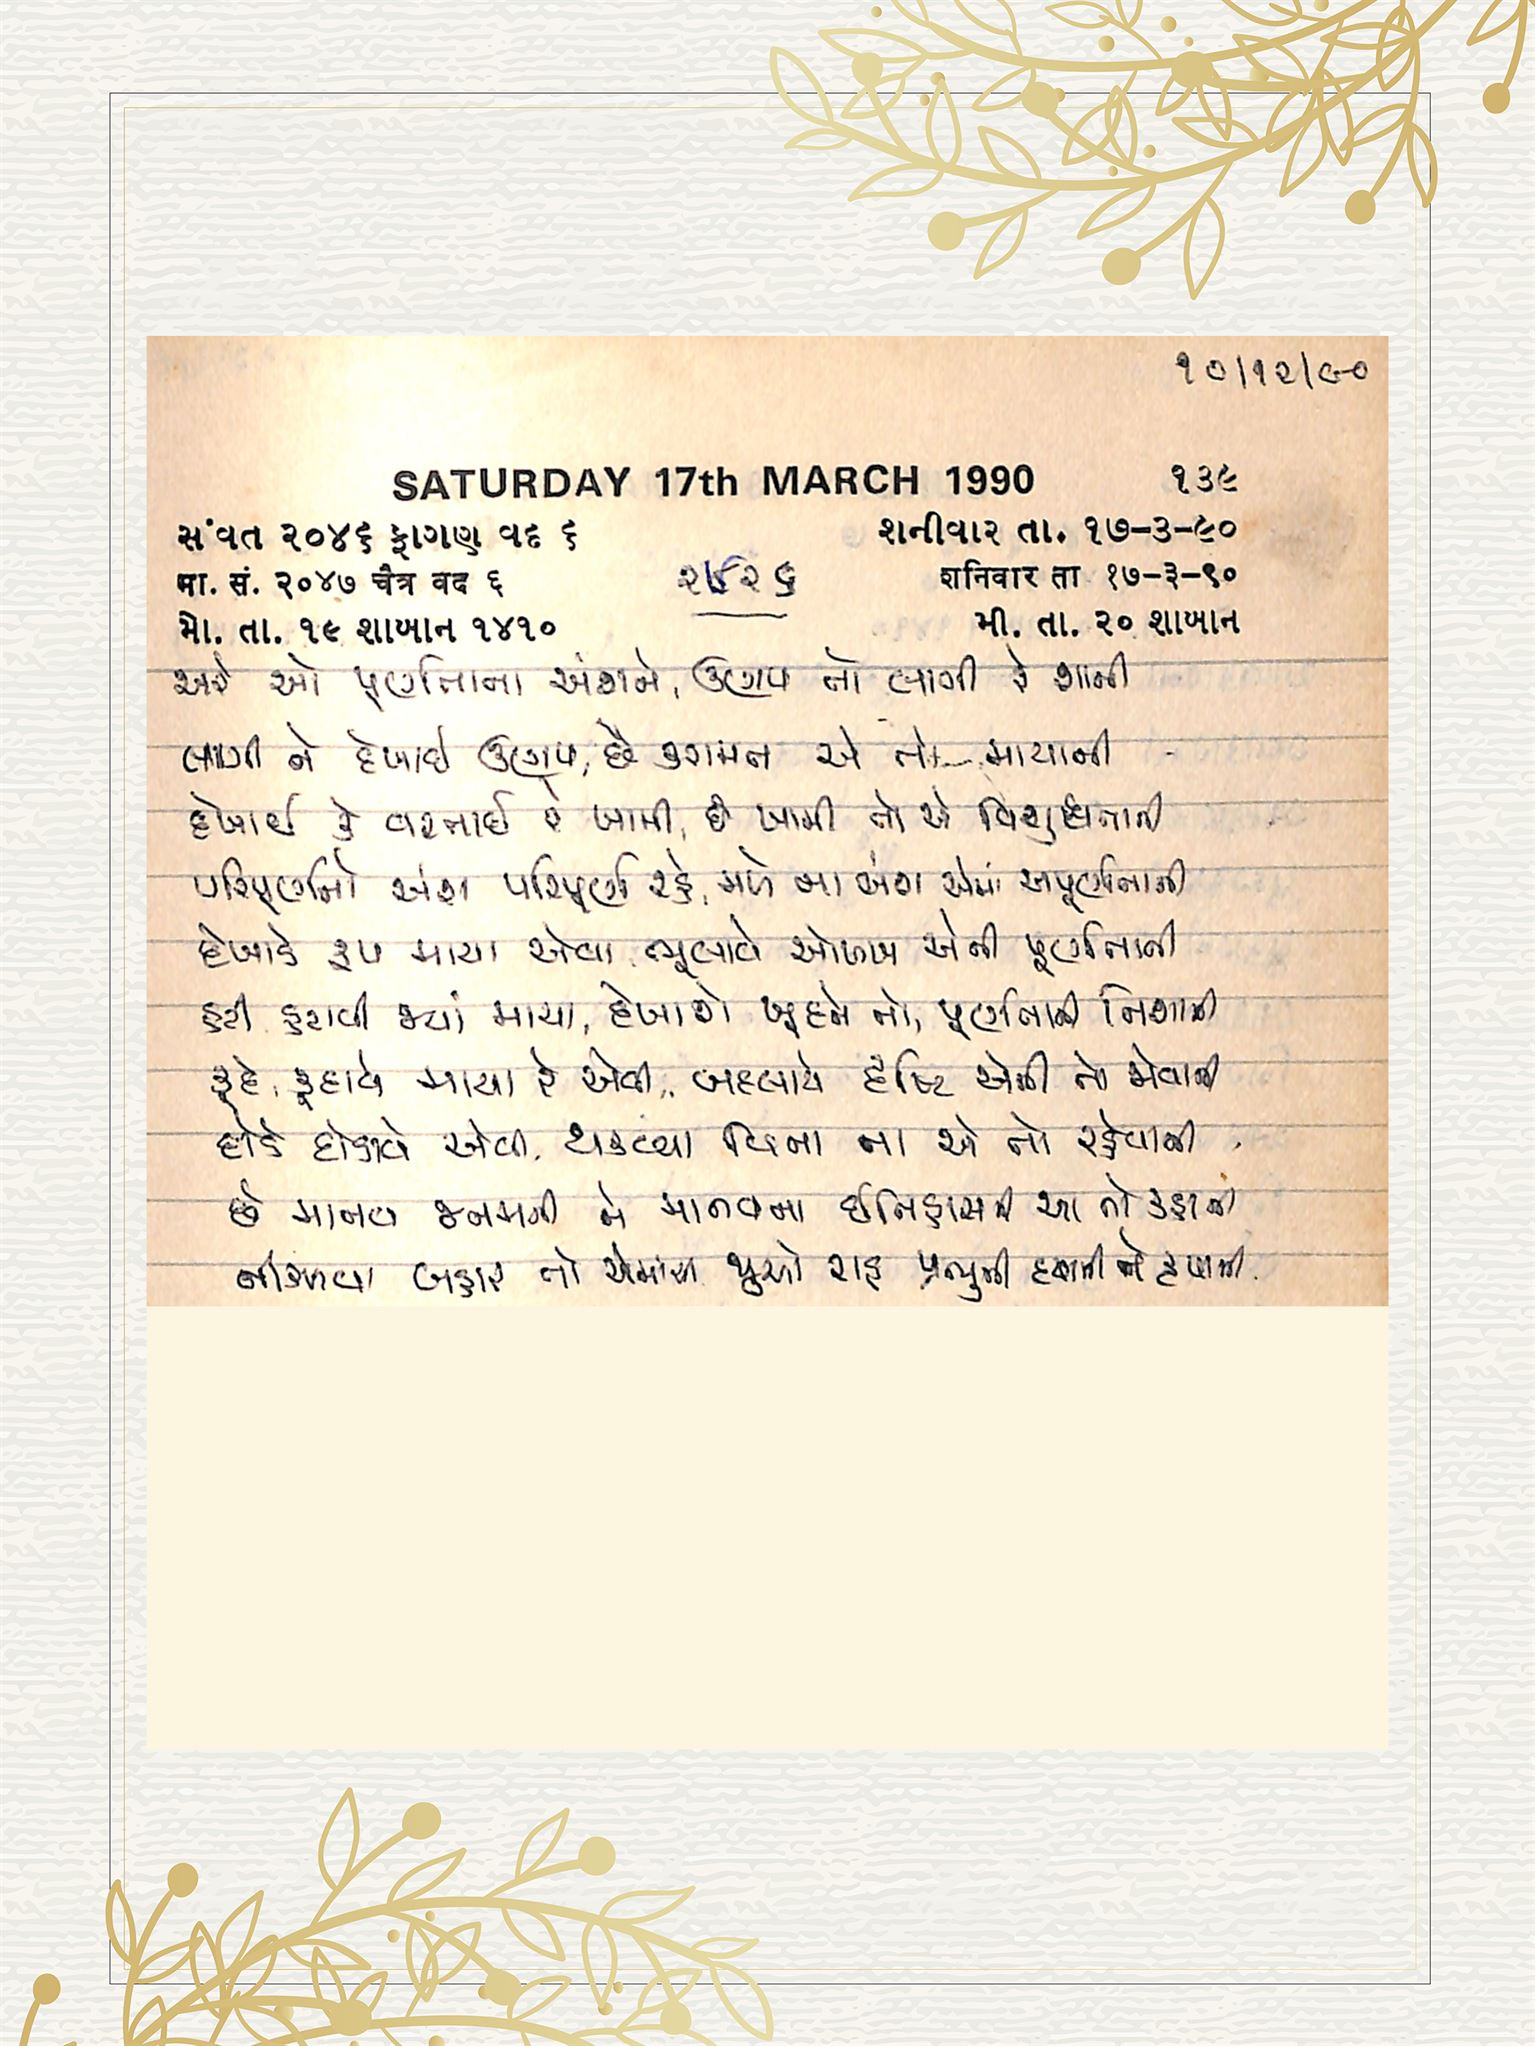 ૧૦/૧૨/૯૦
SATURDAY 17th MARCH 1990 ૧૩૯
સંવત ૨૦૪૬ ફાગણ વદ ૬ શનીવાર તા. ૧૭-૩-૯૦
मा. सं. २०४७ चैत्र वद ६ शनिवार ता १७-३-९०
મો. તા. ૧૯ શાબાન ૧૪૧૦ મી. તા. ૨૦ શાબાન
અરે ઓ પૂર્ણતાના અંશને, ઉણપ તો લાગી રે શાની
લાગી ને દેખાઈ ઉણપ, છે કરામત એ તો માયાની
દેખાઈ કે વરતાઈ રે ખામી, છે ખામી તો એ વિશુદ્ધતાની
પરિપૂર્ણનો અંશ પરિપૂર્ણ રહે, મળે ના અંશ એમાં અપૂર્ણતાની
દેખાડે રૂપ માયા એવા, ભૂલાવે ઓળખ એની પૂર્ણતાની
હટી હટાવી જ્યાં માયા, દેખાશે ખુદને તો, પૂર્ણતાની નિશાની
કૂદે, કૂદાવે માયા રે એવી, બદલાયે દૃષ્ટિ એની તો જોવાની
દોડે દોડાવે એવી, થકવ્યા વિના ના એ તો રહેવાની
છે માનવ જનમની ને માનવના ઇતિહાસની આ તો કહાની
નીકળવા બહાર તો એમાંથી જુઓ રાહ પ્રભુની દયાની ને કૃપાની